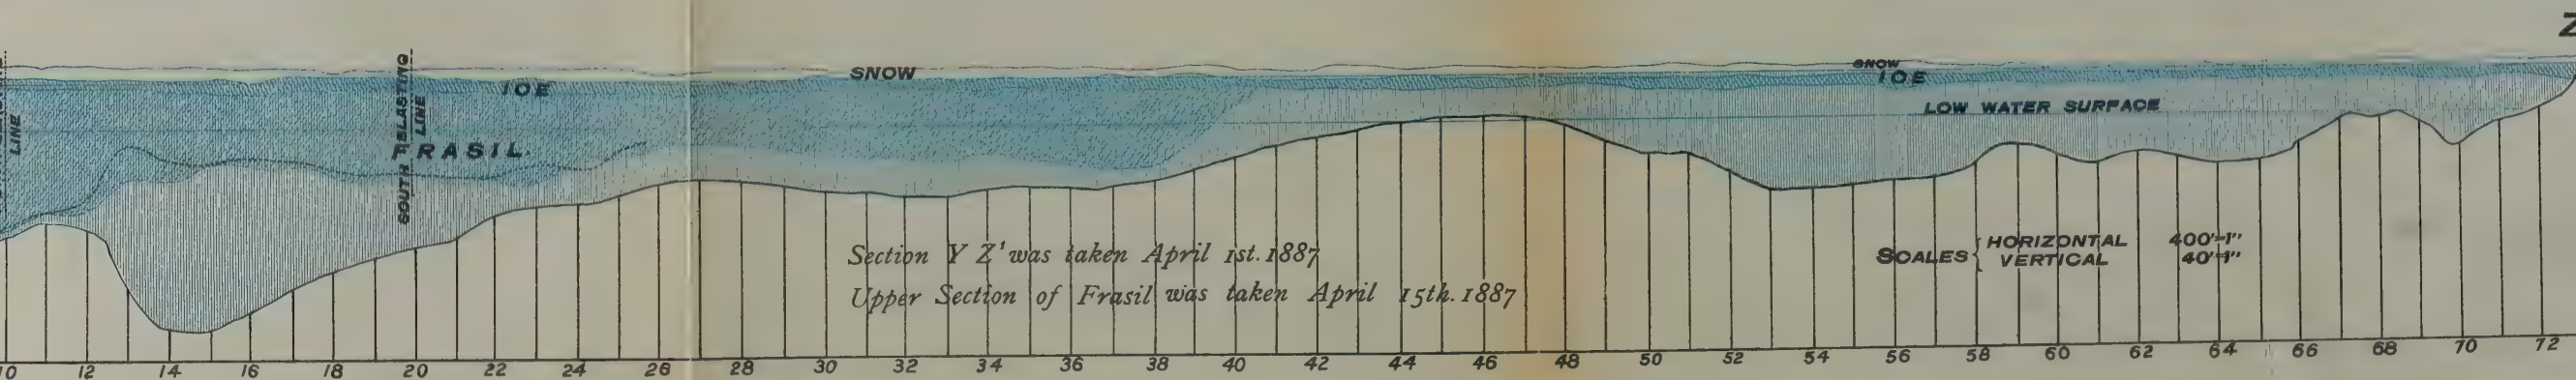 Z
LINE
SOUTH BLASTING LINE
SNOW
ICE
FRASIL
SNOW
ICE
LOW WATER SURFACE
Section Y Z' was taken April 1st. 1887
Upper Section of Frasil was taken April 15th. 1887
SCALES { HORIZONTAL 400'=1"
VERTICAL 40'=1"
10 12 14 16 18 20 22 24 26 28 30 32 34 36 38 40 42 44 46 48 50 52 54 56 58 60 62 64 66 68 70 72